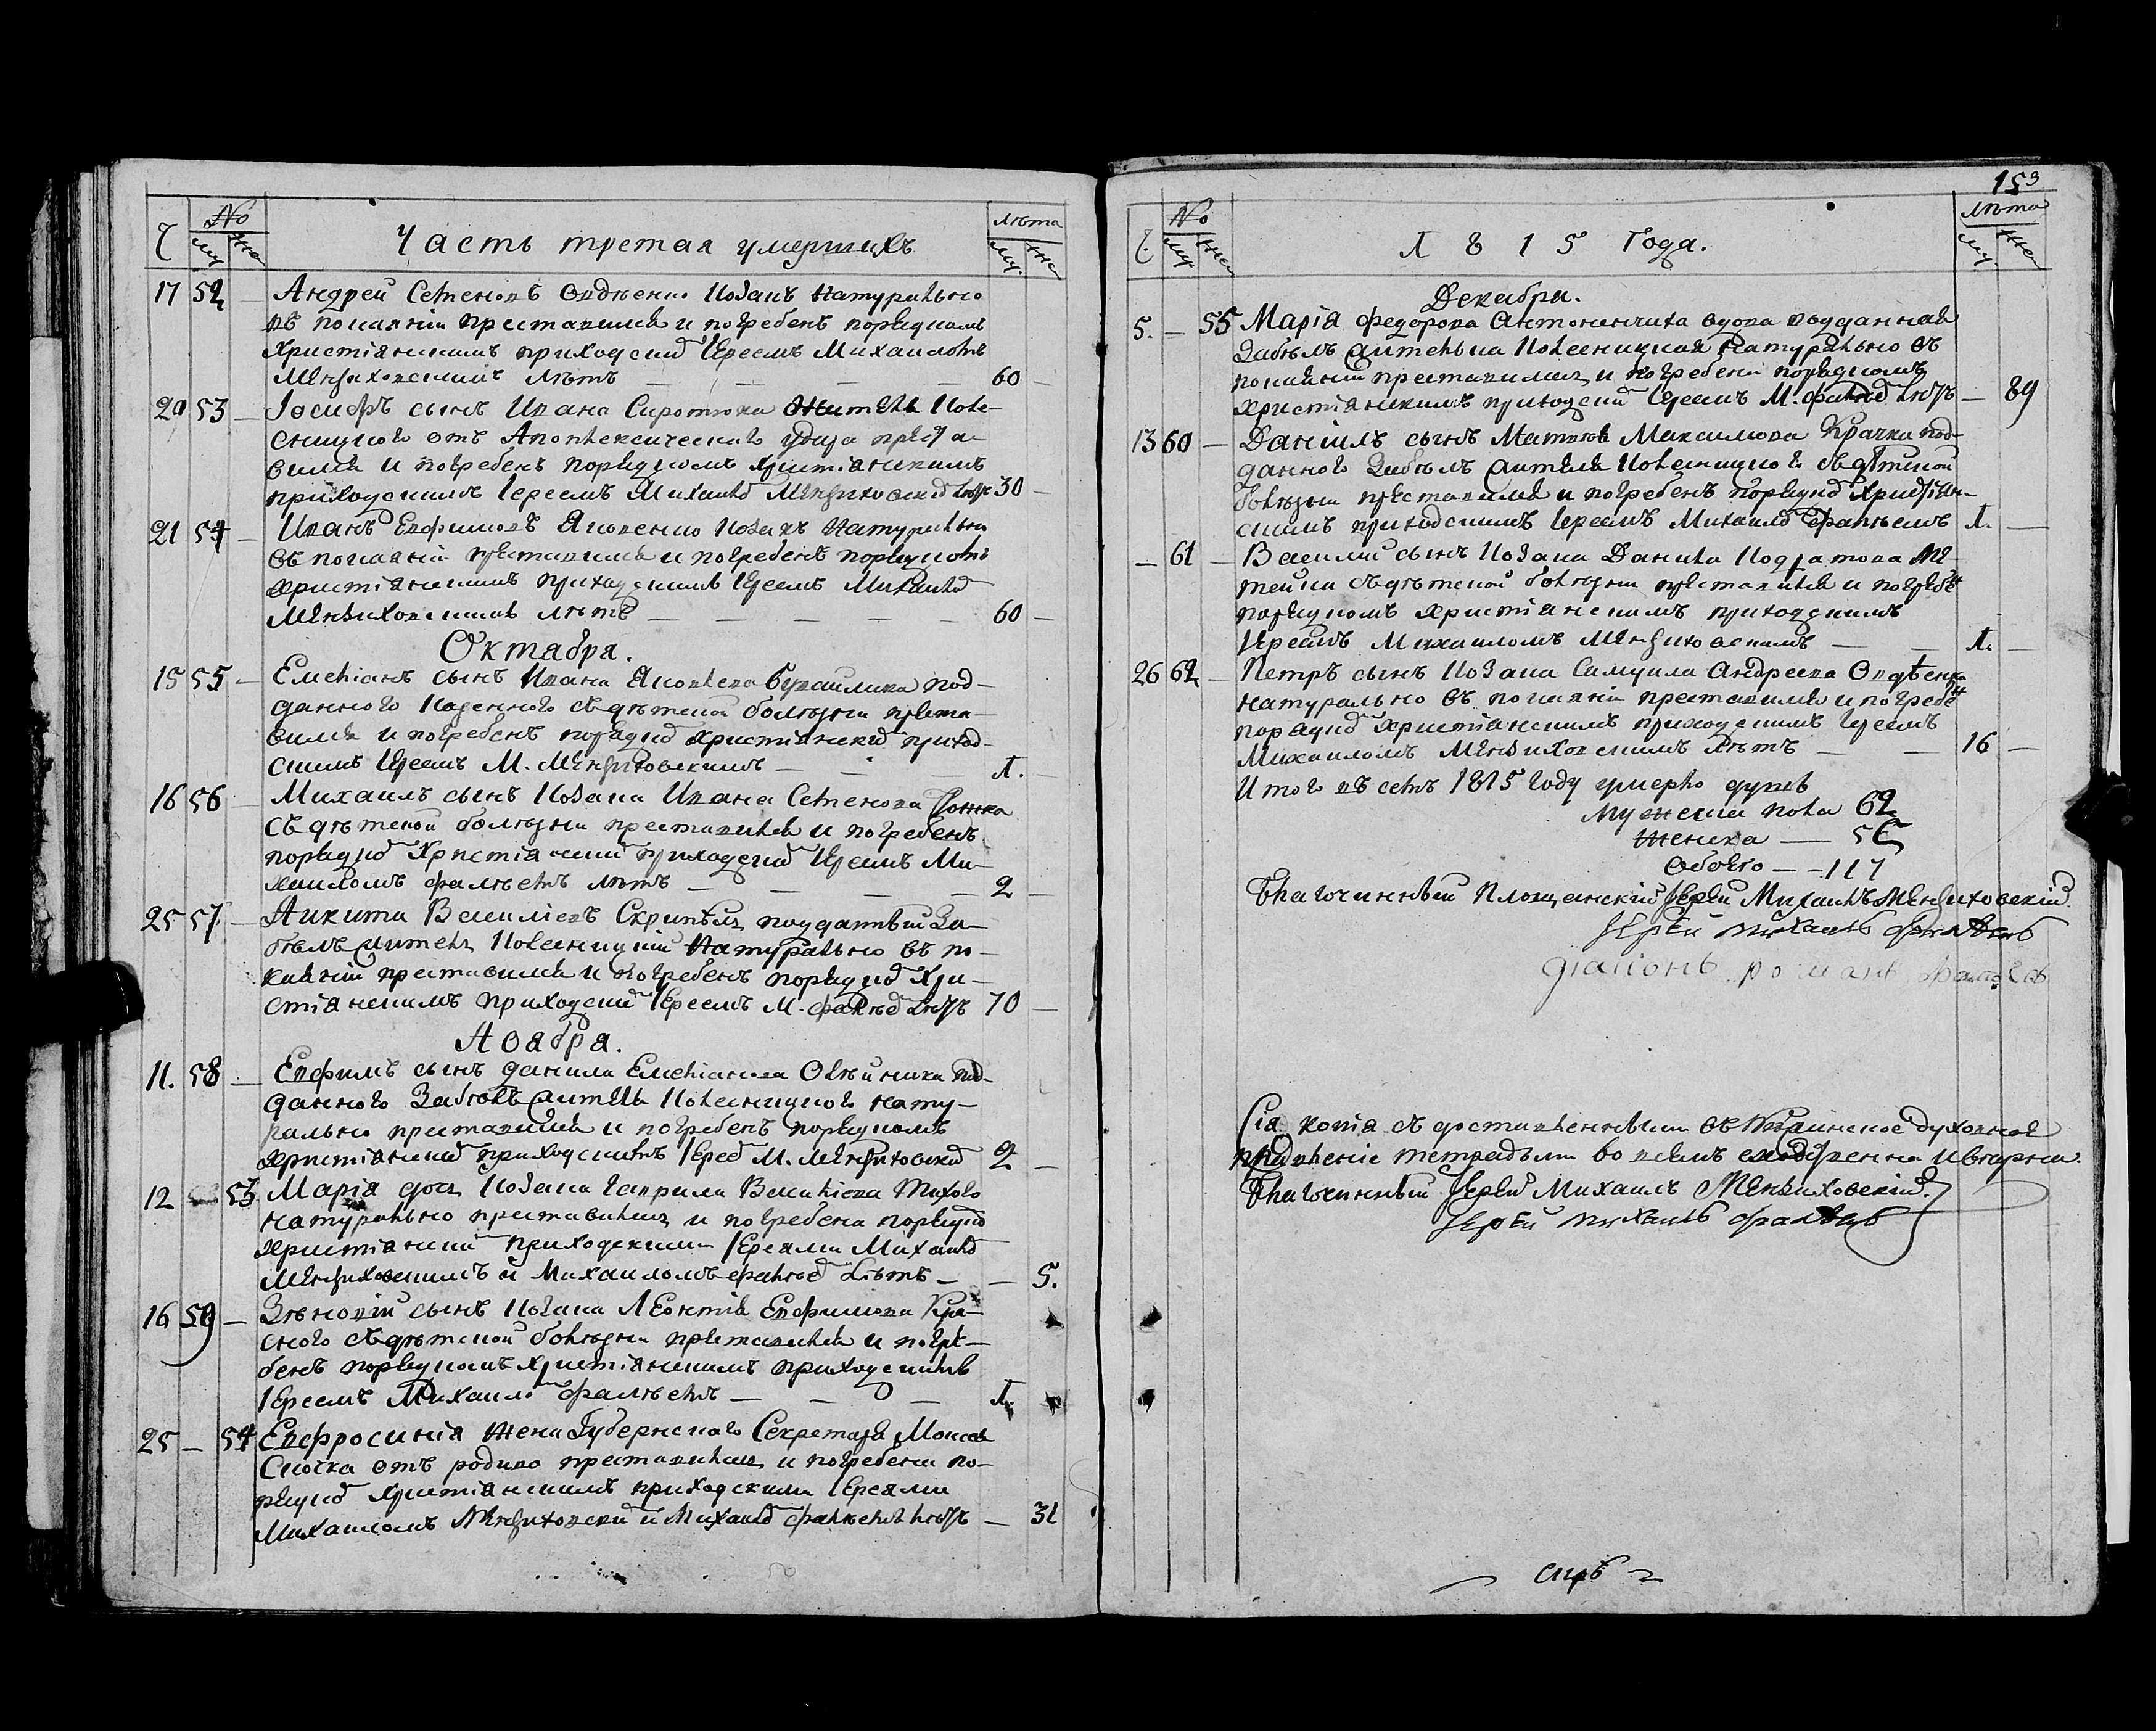 Ч № му же Часть третая умершихъ лѣта му. же
17 52 — Андрей Семеновъ Овдѣенко Козакъ Натурально
въ покаяніи преставился и погребенъ порядкомъ
Христіянскимъ приходским Іереемъ Михаиломъ
Менжиховскимъ лѣтъ — — — — 60 —
20 53 — Іосифъ сынъ Ивана Сиротюка Житель
от Апоплексическаго удара преста
вился и погребенъ порядкомъ христіянскимъ
приходскимъ Іереемъ Михаило Менжиховским лѣтъ 30 —
21 54 — Иванъ Евфимовъ Яковенко Козакъ Натурально
въ покаяніи преставился и погребенъ порядкомъ
христіянскимъ приходскимъ Іереемъ Михаило
Менжиховскимъ лѣтъ — — — — — 60 —
Октабра.
15 55 — Емеліанъ сынъ Ивана Яковлева под-
данного Казенного съ дѣтской болѣзни преста-
вился и погребенъ порядко христіянски приход-
скимъ Іереемъ М. Менжиховскимъ — — — 1.
16 56 — Михаилъ сынъ Козака Ивана Семенова
съ дѣтской болѣзни преставился и погребенъ
порядко Христіянским приходским Іереемъ Ми-
хаиломъ Фалѣевъ лѣтъ — — — — 2 —
25 57 — Никита Василіевъ Скрипѣлъ подданый За-
Натурально въ по-
каяніи преставился и погребенъ порядко Хри-
стіянскимъ приходским Іереемъ М. Фалѣев лѣтъ 70 —
Ноабра.
11. 58 — Евфимъ сынъ Данила Емеліанова под-
данного нату-
рально преставился и погребенъ порядкомъ
христіянским приходскимъ Іерее М. Менжиховски 2 —
12 — 53 Марія дочь Козака Гаврила Василіева Тихого
натурально преставилась и погребена порядко
христіянским приходскими Іереями Михаило
Менжиховскимъ и Михаиломъ Фалѣев Лѣтъ — — 5.
16 59 — Зѣновій сынъ Козака Леонтія Евфимова Кра-
сного съ дѣтской болѣзни преставился и погре-
бенъ порядкомъ христіянскимъ приходскимъ
Іереемъ Михаило Фалѣевъ — — — 1.
25 — 54 Евфросинія жена Губернского Секретаря Моисея
Сночка отъ родива преставилась и погребена по-
рядко христіянскимъ приходскими Іереями
Михаиломъ Менжиховски и Михаило Фалѣевъ лѣтъ — 31
153
Ч. № му же 1 8 1 5 Года. Лѣта му. же
Декабра.
5. — 55 Марія Федорова Антоненчиха вдова подданная
Натурально въ
покаяніи преставилась и погребена порядкомъ
христіянскимъ приходским Іереемъ М. Фалѣев Лѣтъ — 89
13 60 — Даніилъ сынъ Матвея Максимова Крачка под-
данного съ дѣтской
болѣзни преставился и погребенъ порядко Христіян-
скимъ приходскимъ Іереемъ Михаило Фалѣемъ 1. —
— 61 — Василій сынъ Козака Данила Кодратова
съ дѣтской болѣзни преставился и погребенъ
порядкомъ христіянскимъ приходскимъ
Іереемъ Михаиломъ Менжиховскимъ — — 1. —
26 62 — Петръ сынъ Козака Самуила Андреева Овдѣенка
натурально въ покаяніи преставился и погребенъ
порядко христіянскимъ приходскимъ Іереемъ
Михаиломъ Менжиховскимъ лѣтъ — — 16 —
Итого въ семъ 1815 году умерло душъ
Мужеска пола 62
Женска — 55
Обоего — — 117
Благочинный Площанскій Іерей Михаилъ Менжиховскій.
Іерей Михаилъ Фалѣевъ
діаконъ Романъ Фалѣевъ
Сія копія съ доставленными въ духовное
правленіе тетрадьми во всемъ сходственна и вѣрна.
Благочинный Іерей Михаилъ Менжиховскій.
Іерей Михаилъ Фалѣевъ